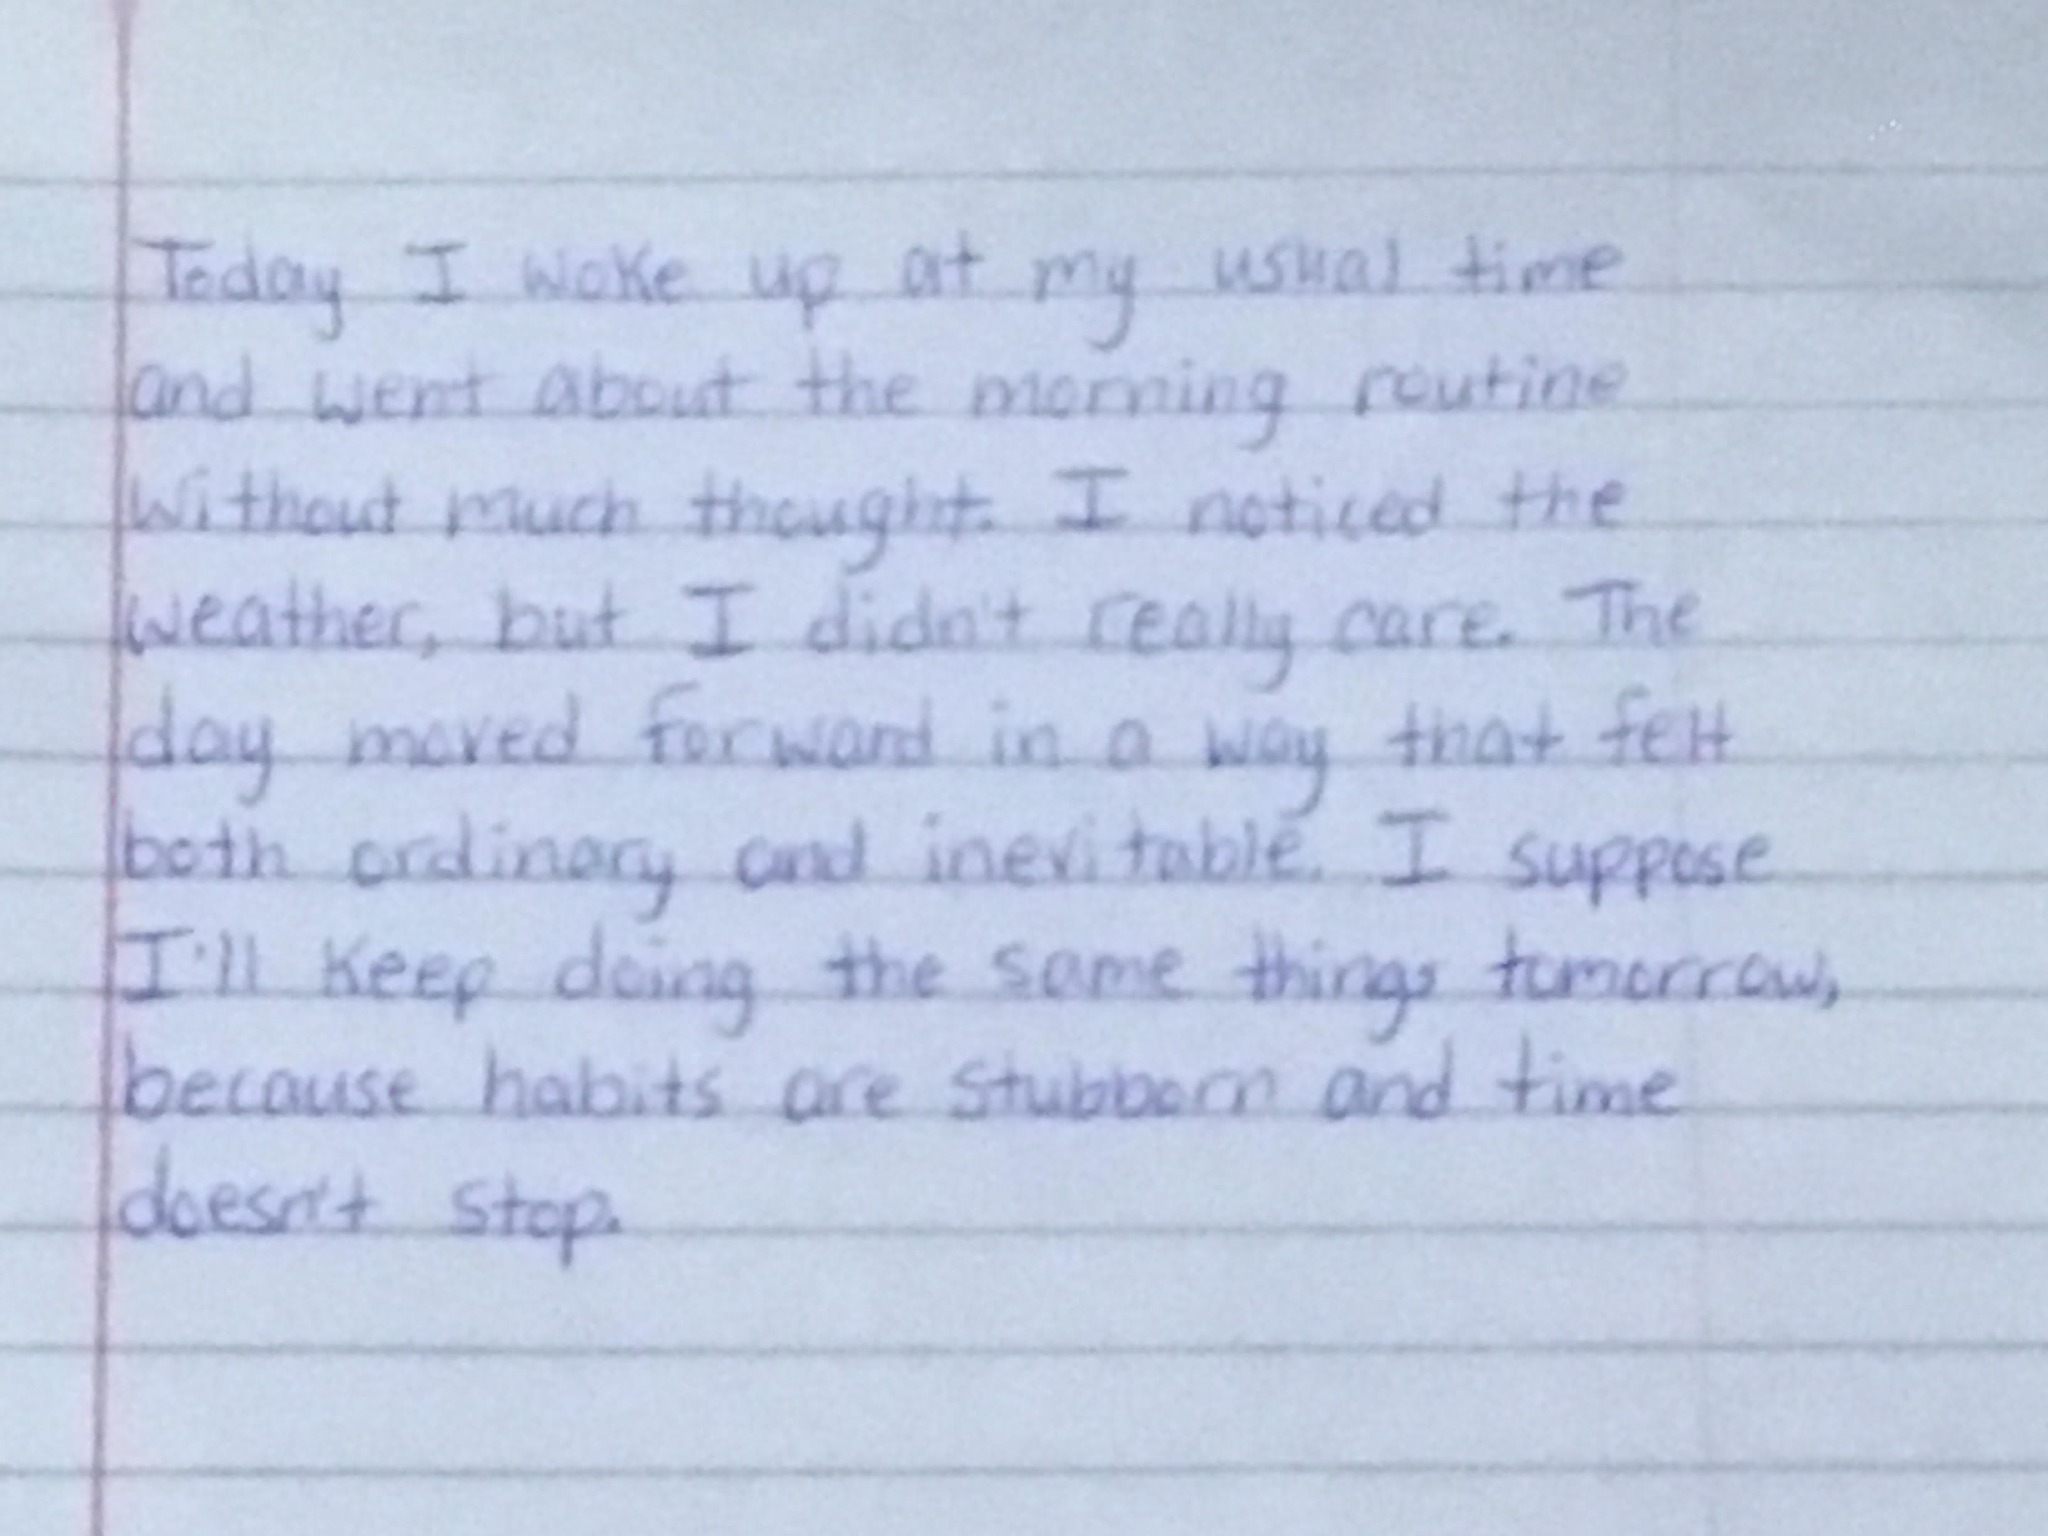 Today I woke up at my usual time
and went about the morning routine
without much thought. I noticed the
weather, but I didn't really care. The
day moved forward in a way that felt
both ordinary and inevitable. I suppose
I'll keep doing the same things tomorrow,
because habits are stubborn and time
doesn't stop.